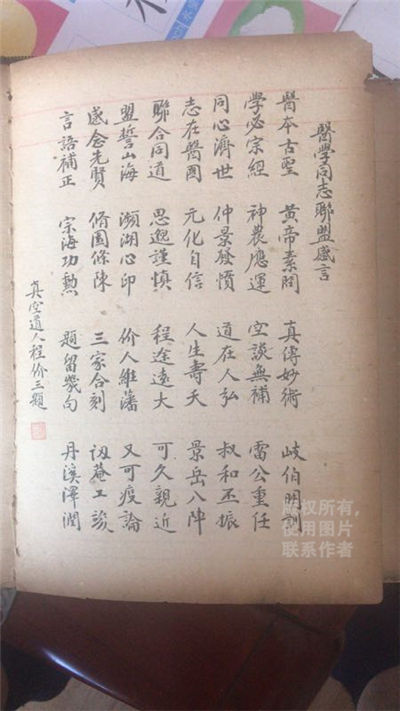 醫學同志聯盟感言
醫本古聖 黃帝素問 真傳妙術 岐伯明訓
學必宗經 神農應運 空談無補 雷公重任
同心濟世 仲景發憤 道在人弘 叔和丕振
志在醫國 元化自信 人生壽夭 景岳八陣
聯合同道 思邈謹慎 程途遠大 可久親近
盟誓山海 瀕湖心印 价人維藩 又可疫論
感念先賢 脩園條陳 三家合刻 訒菴工竣
言語補正 宗海功勳 題留幾句 丹溪澤潤
真空道人程价三題
版权所有,
使用图片
联系作者